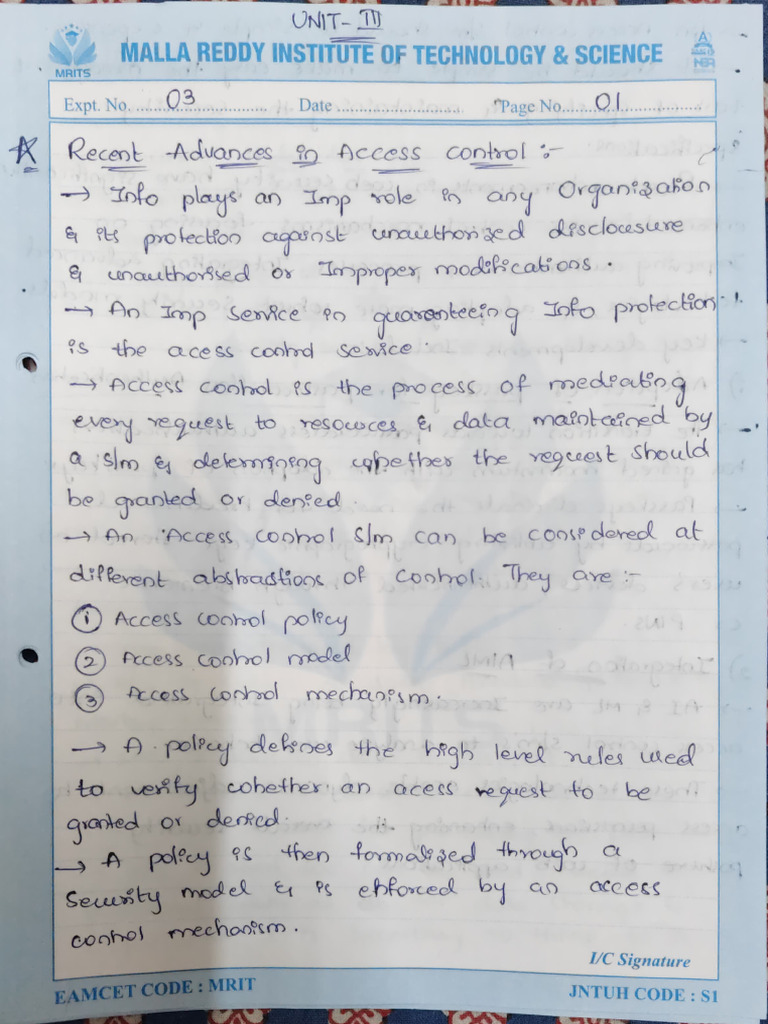 UNIT- III
MALLA REDDY INSTITUTE OF TECHNOLOGY & SCIENCE
MRITS
Expt. No. 03 Date Page No. 01
Recent Advances in Access control :-
→ Info plays an Imp role in any Organization
& its protection against unauthorized disclosure
& unauthorised or Improper modifications.
→ An Imp service in guaranteeing Info protection
is the acess control service.
→ Access control is the process of mediating
every request to resources & data maintained by
a s/m & determining whether the request should
be granted or denied.
→ An Access control s/m can be considered at
different abstractions of control. They are :-
① Access control policy
② Access control model
③ Access control mechanism.
→ A policy defines the high level rules used
to verify whether an acess request to be
granted or denied.
→ A policy is then formalized through a
Security model & is enforced by an access
control mechanism.
I/C Signature
EAMCET CODE : MRIT JNTUH CODE : S1